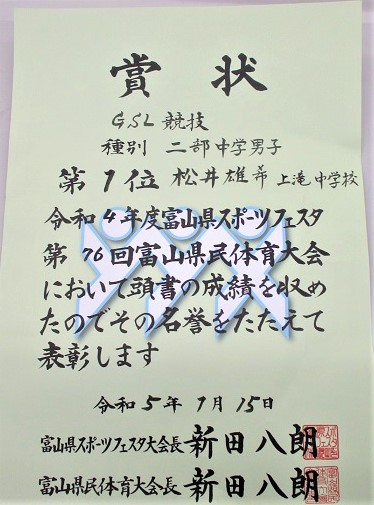 賞状
GSL 競技
種別 二部中学男子
第1位 松井雄希 上滝中学校
令和4年度富山県スポーツフェスタ
第76回富山県民体育大会
において頭書の成績を収め
たのでその名誉をたたえて
表彰します
令和5年1月15日
富山県スポーツフェスタ大会長 新田八朗
富山県民体育大会長 新田八朗